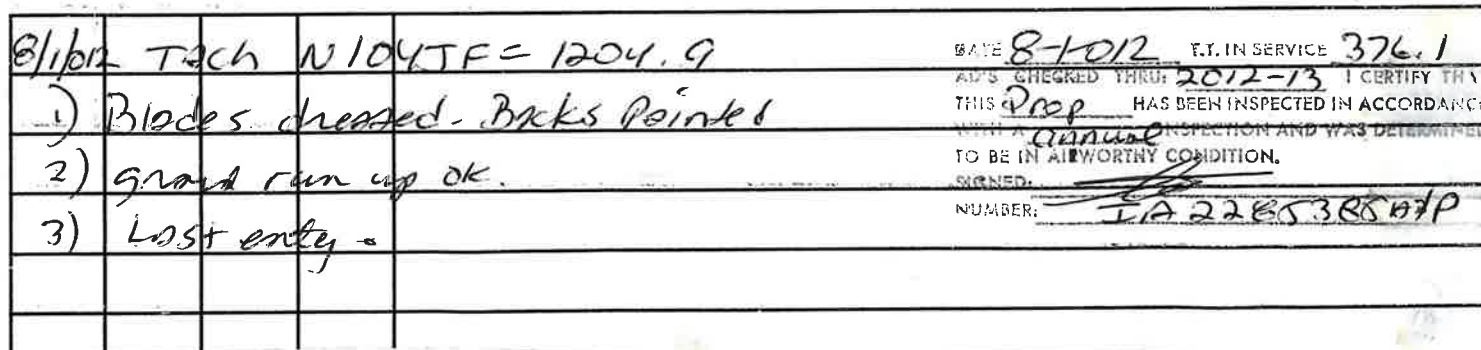 8/1/012 Tach N104JF = 1204.9
1) Blades dressed - Backs Painted
2) ground run up ok.
3) Last entry -
DATE 8-1-012 T.T. IN SERVICE 376.1
AD'S CHECKED THRU: 2012-13 I CERTIFY TH
THIS Prop HAS BEEN INSPECTED IN ACCORDANCE
WITH A annual INSPECTION AND WAS DETERMINED
TO BE IN AIRWORTHY CONDITION.
SIGNED:
NUMBER: IA